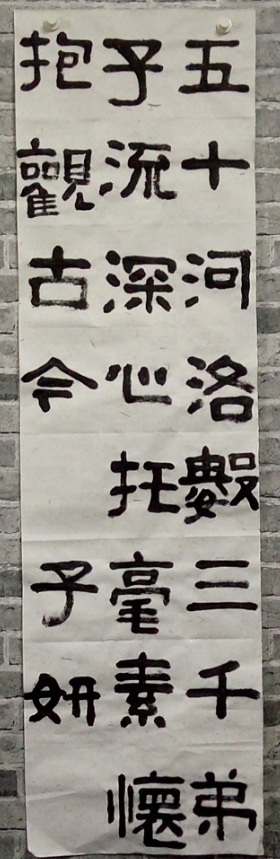 五十河洛數三千弟
子流深心托毫素懷
抱觀古今
子妍